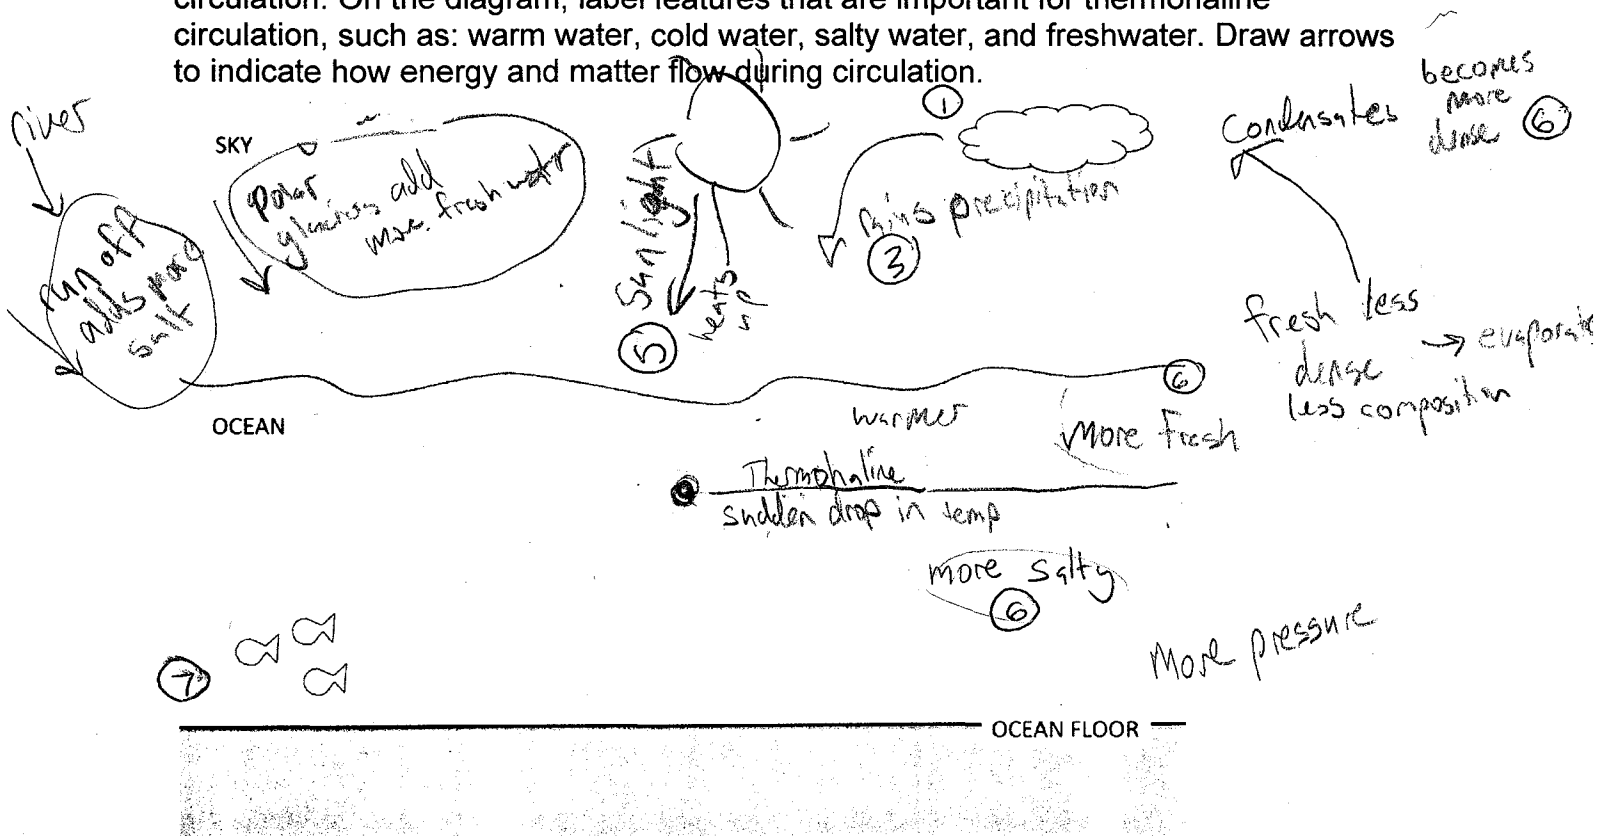 circulation. On the diagram, label features that are important for thermohaline
circulation, such as: warm water, cold water, salty water, and freshwater. Draw arrows
to indicate how energy and matter flow during circulation.
becomes
more
dense 6
Condensates
1
river
SKY
polar
glaciers add
more fresh water
run off
adds more
salt
Sunlight
5
heats
up
rains precipitation
3
fresh less
dense → evaporate
less composition
6
OCEAN
warmer
More Fresh
Thermohaline
sudden drop in temp
more salty
6
More pressure
7
OCEAN FLOOR